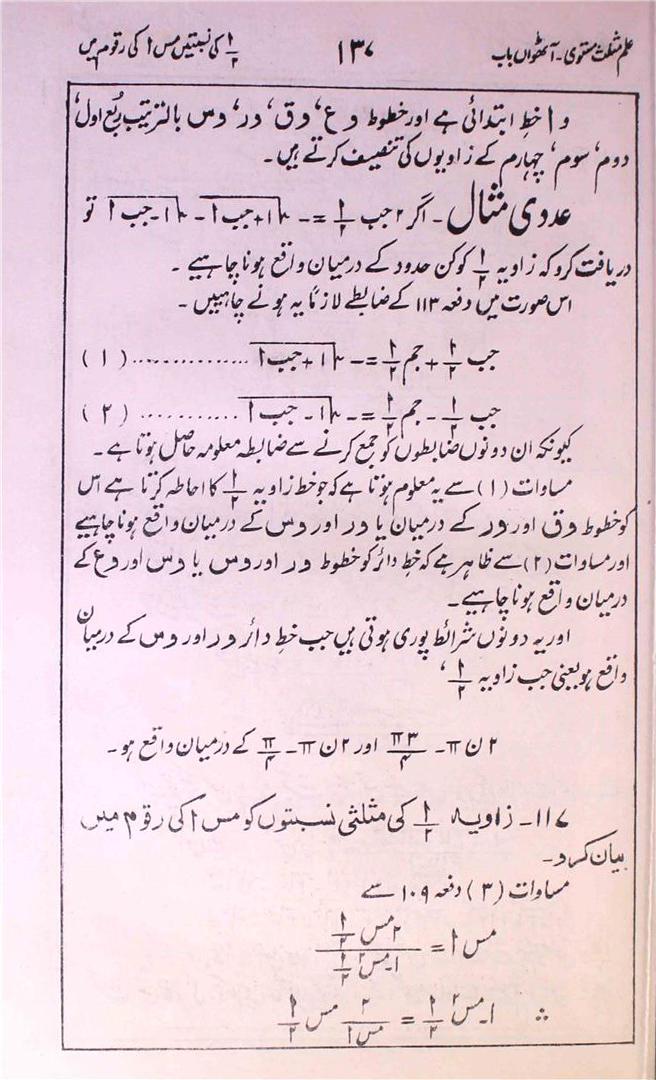 علم مثلث مستوی۔ آٹھواں باب ۱۳۷ ا/۲ کی نسبتیں مس ا کی رقوم میں
و ا خطِ ابتدائی ہے اور خطوط و ع، و ق، و ر، و س بالترتیب ربع اول،
دوم، سوم، چہارم کے زاویوں کی تنصیف کرتے ہیں۔
عددی مثال۔ اگر ۲ جب ا/۲ = -√(۱+جب ا) - √(۱-جب ا) تو
دریافت کرو کہ زاویہ ا/۲ کو کن حدود کے درمیان واقع ہونا چاہیے۔
اس صورت میں دفعہ ۱۱۳ کے ضابطے لازماً یہ ہونے چاہییں۔
جب ا/۲ + جم ا/۲ = -√(۱+جب ا) .............. (۱)
جب ا/۲ - جم ا/۲ = -√(۱-جب ا) ........... (۲)
کیونکہ ان دونوں ضابطوں کو جمع کرنے سے ضابطہ معلومہ حاصل ہوتا ہے۔
مساوات (۱) سے یہ معلوم ہوتا ہے کہ جو خط زاویہ ا/۲ کا احاطہ کرتا ہے اس
کو خطوط و ق اور و ر کے درمیان یا و ر اور و س کے درمیان واقع ہونا چاہیے
اور مساوات (۲) سے ظاہر ہے کہ خطِ دائر کو خطوط و ر اور و س یا و س اور و ع کے
درمیان واقع ہونا چاہیے۔
اور یہ دونوں شرائط پوری ہوتی ہیں جب خطِ دائر و ر اور و س کے درمیان
واقع ہو یعنی جب زاویہ ا/۲،
۲ ن π - ۳π/۴ اور ۲ ن π - π/۴ کے درمیان واقع ہو۔
۱۱۷۔ زاویہ ا/۲ کی مثلثی نسبتوں کو مس ا کی رقوم میں
بیان کرو۔
مساوات (۳) دفعہ ۱۰۹ سے
مس ا = (۲ مس ا/۲)/(۱-مس² ا/۲)
∴ ۱-مس² ا/۲ = ۲/(مس ا) مس ا/۲